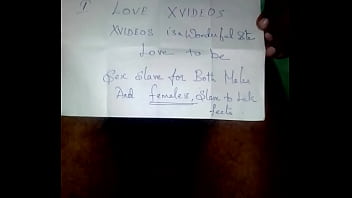 I LOVE XVIDEOS
XVIDEOS is a Wonderful Site
Love to be
Sex Slave for Both Males
And females, Slave to Lick
feets